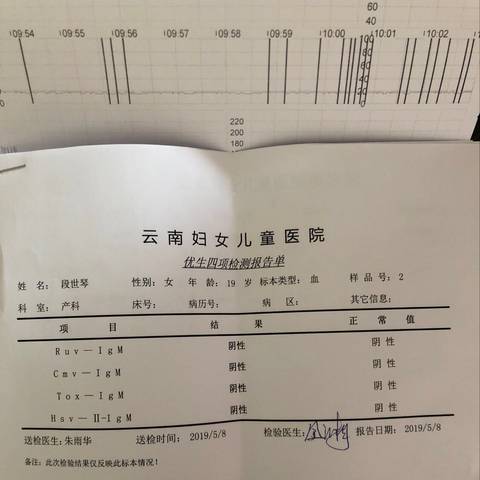 60
40
09:54 09:55 09:56 09:57 09:58 09:59 10:00 10:01 10:02
100
80
60
40
20
0
220
200
180
云南妇女儿童医院
优生四项检测报告单
姓 名: 段世琴 性别: 女 年 龄: 19 岁 标本类型: 血 样 品 号: 2
科 室: 产科 床号: 病历号: 病 区: 其它信息:
项 目 结 果 正 常 值
Ruv—IgM 阴性 阴 性
Cmv—IgM 阴性 阴 性
Tox—IgM 阴性 阴 性
Hsv—II-IgM 阴性 阴 性
送检医生: 朱雨华 送检时间: 2019/5/8 检验医生: 报告日期: 2019/5/8
备注: 此次检验结果仅反映此标本情况!